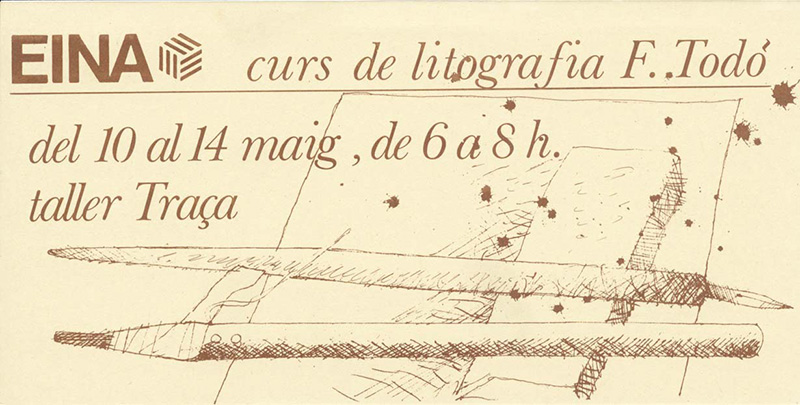 EINA curs de litografia F. Todó
del 10 al 14 maig, de 6 a 8 h.
taller Traça